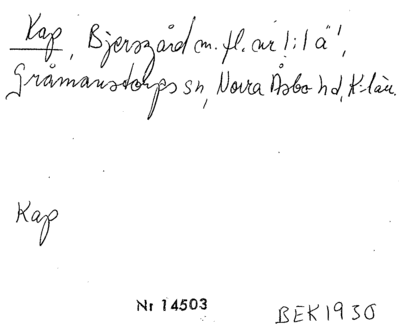 Kap, Bjersgård m. fl. nr 1:1 ä',
Gråmanstorps sn, Norra Åsbo hd, K-län.
Kap
Nr 14503
BEK1930